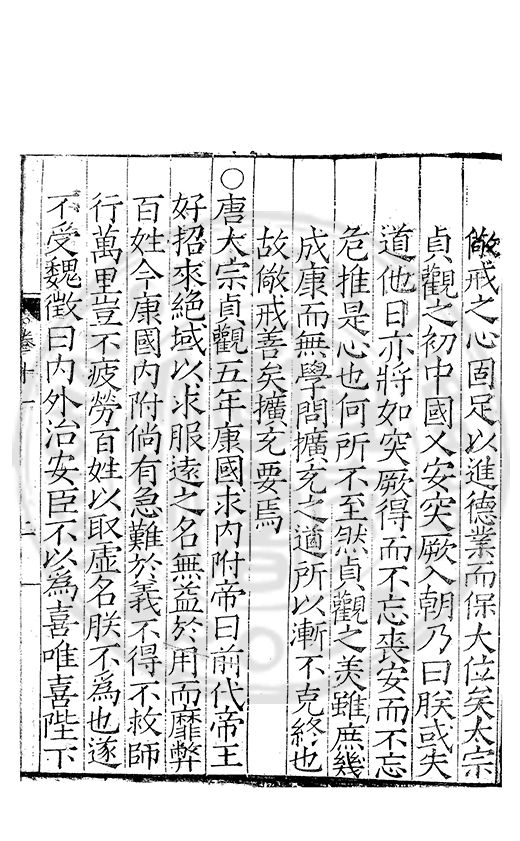 儆戒之心固足以進德業而保大位矣太宗
貞觀之初中國乂安突厥入朝乃曰朕或失
道他日亦將如突厥得而不忘喪安而不忘
危推是心也何所不至然貞觀之美雖庶幾
成康而無學問擴充之道所以漸不克終也
故儆戒善矣擴充要焉
○唐太宗貞觀五年康國求內附帝曰前代帝王
好招來絕域以求服遠之名無益於用而靡弊
百姓今康國內附倘有急難於義不得不救師
行萬里豈不疲勞百姓以取虛名朕不為也遂
不受魏徵曰內外治安臣不以為喜唯喜陛下
卷十一
二